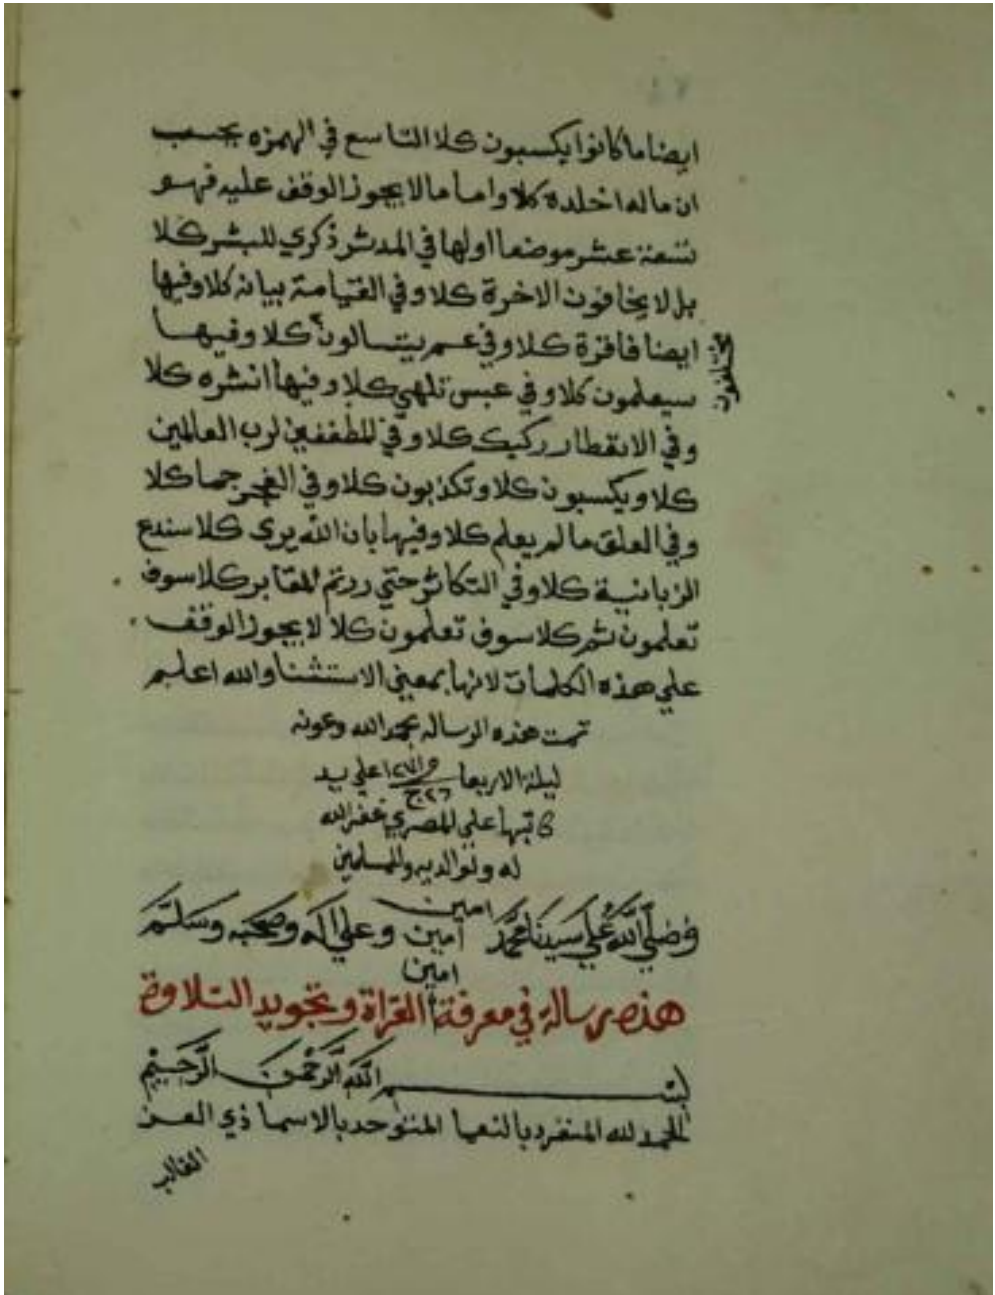 ايضا ما كانوا يكسبون كلا التاسع في الهمزه يحسب
ان ماله اخلده كلا واما ما لا يجوز الوقف عليه فهو
تسعة عشر موضعا اولها في المدثر ذكري للبشر كلا
بل لا يخافون الاخرة كلا وفي القيامة بيانه كلا وفيها
ايضا فاقرة كلا وفي عم يتسالون كلا وفيها
مختلفون
سيعلمون كلا وفي عبس تلهي كلا وفيها انشره كلا
وفي الانفطار ركبك كلا وفي المطففين لرب العالمين
كلا ويكسبون كلا وتكذبون كلا وفي الفجر جما كلا
وفي العلق ما لم يعلم كلا وفيها بان الله يري كلا سندع
الزبانية كلا وفي التكاثر حتي زرتم المقابر كلا سوف
تعلمون ثم كلا سوف تعلمون كلا لا يجوز الوقف
علي هذه الكلمات لانها بمعني الاستثنا والله اعلم
تمت هذه الرساله بحمد الله وعونه
ليلة الاربعا ٢٦ ج علي يد
كاتبها علي المصري غفر الله
له ولوالديه والمسلمين
امين
وصلي الله علي سيدنا محمد امين وعلي اله وصحبه وسلم
امين
هذه رسالة في معرفة القراة وتجويد التلاوة
بسم الله الرحمن الرحيم
الحمد لله المنفرد بالنعما المتوحد بالاسما ذي العز
الغالب